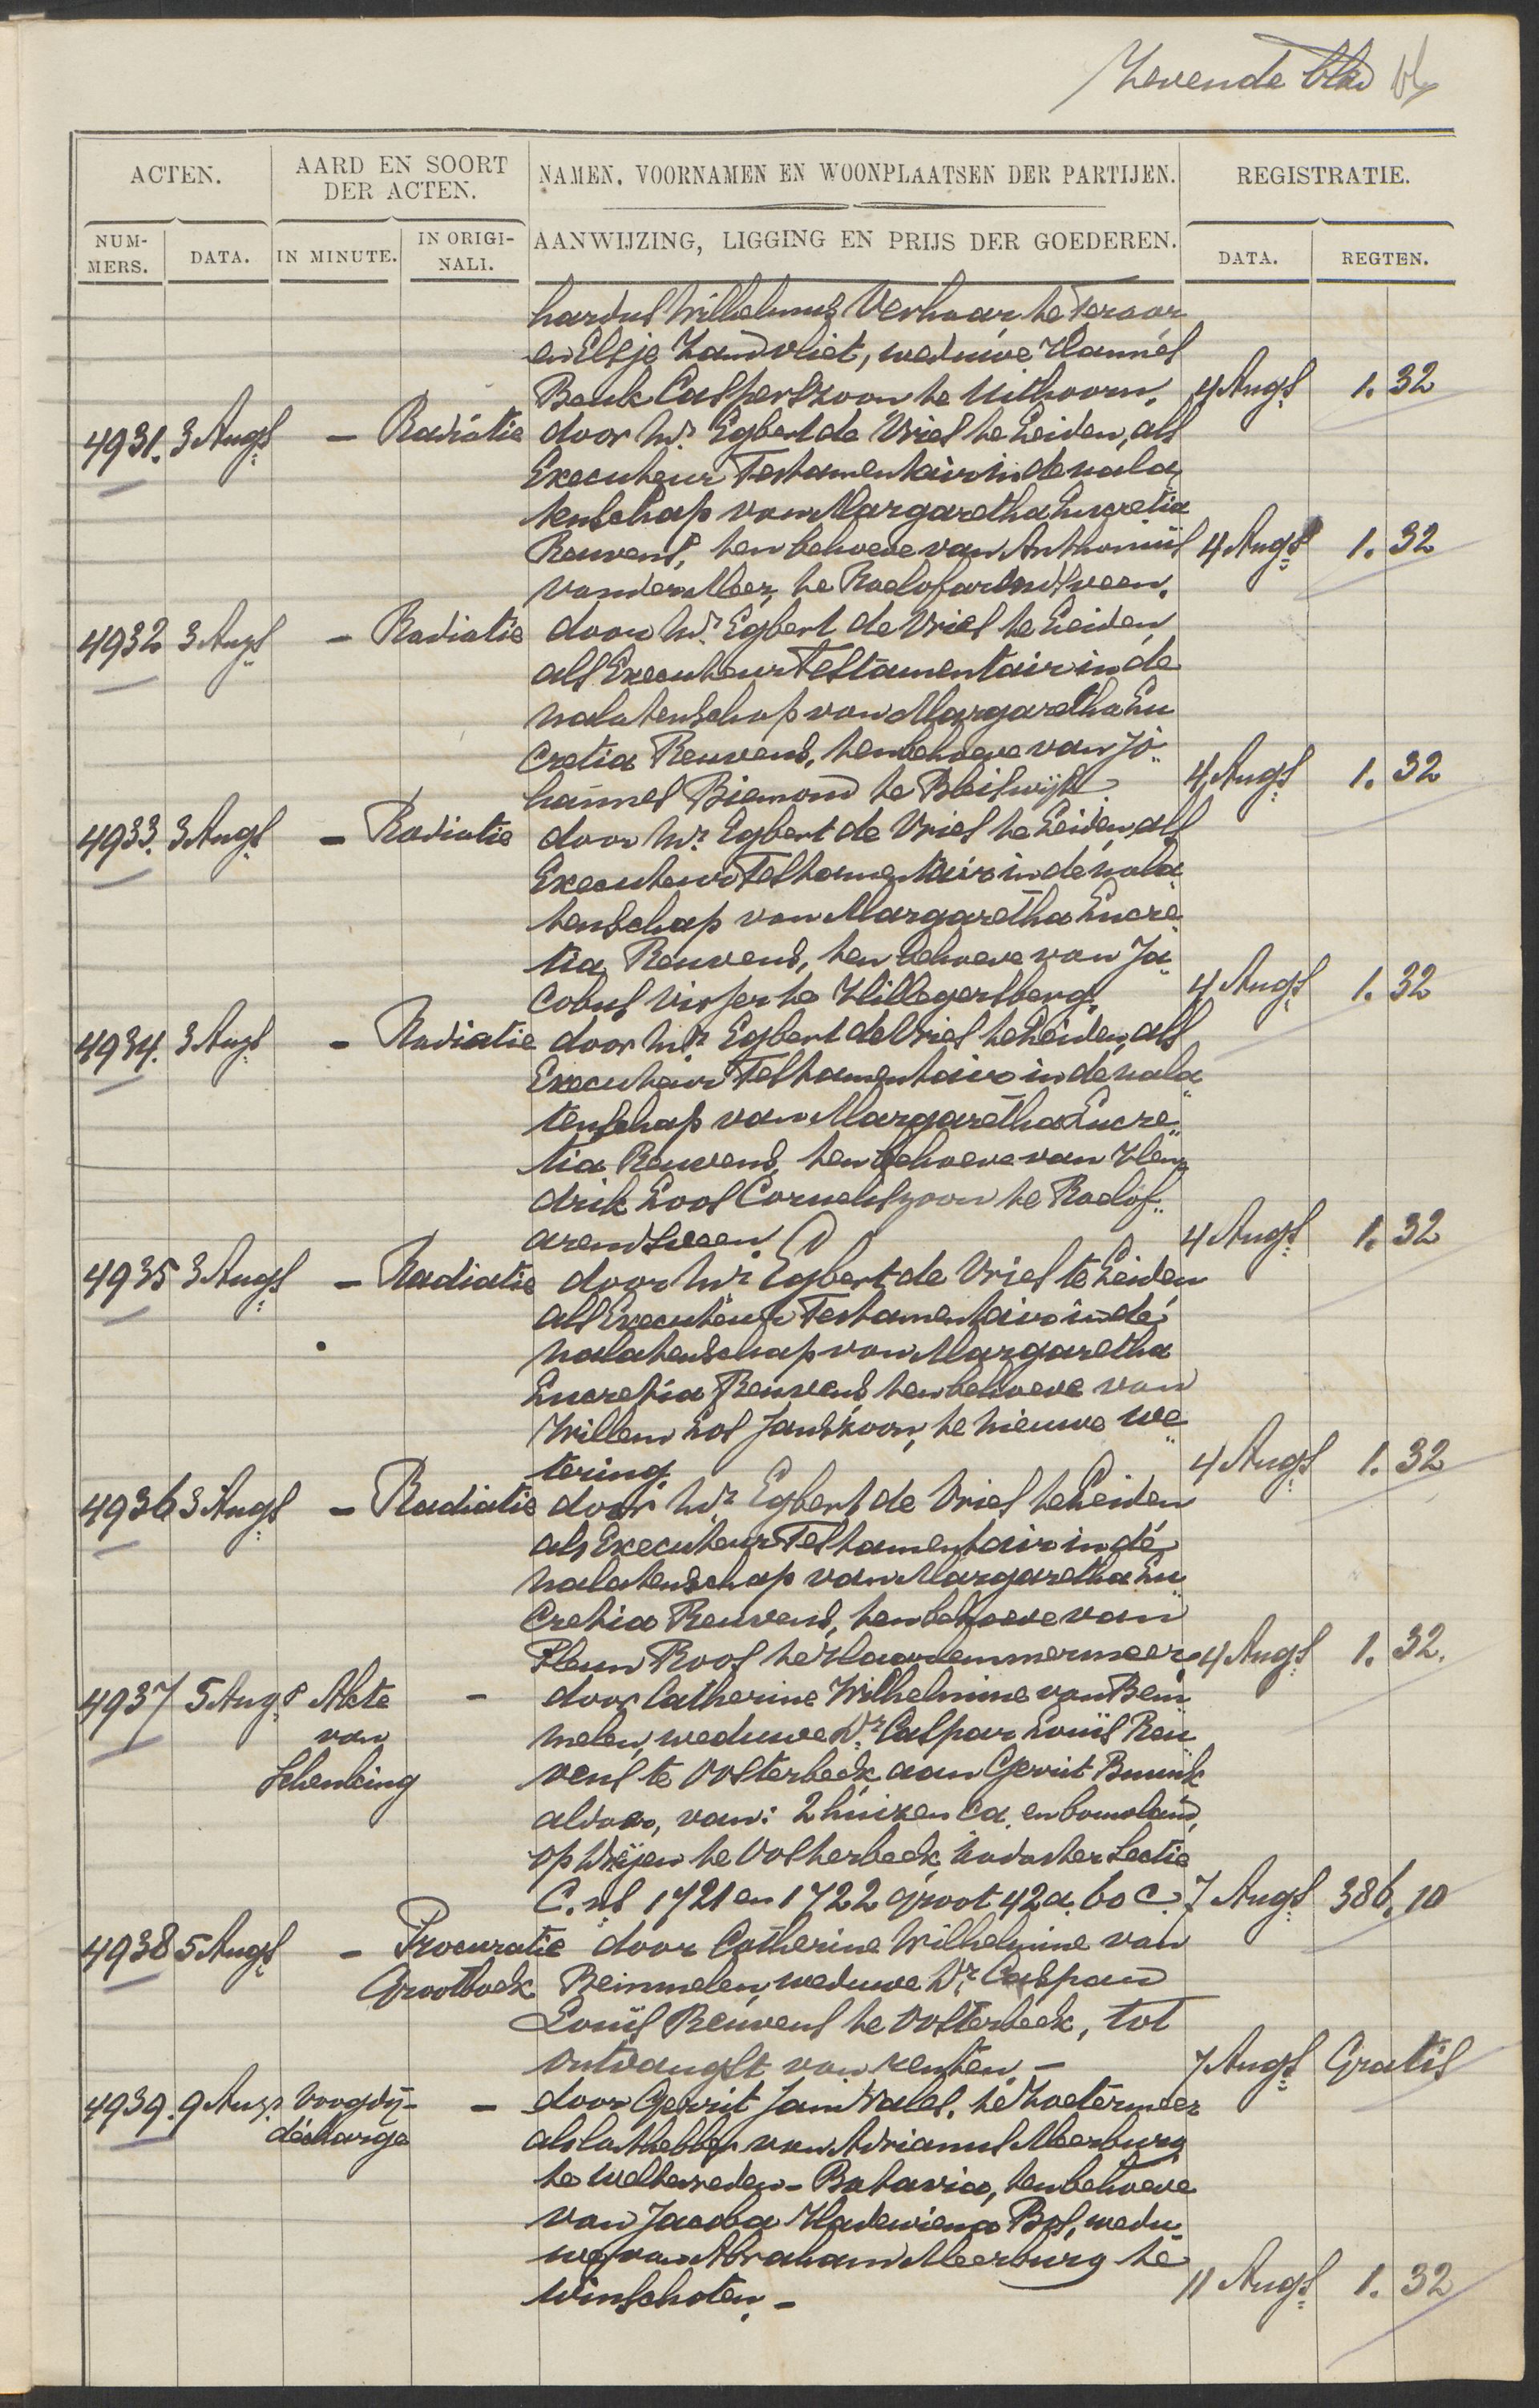 Zevende blad
ACTEN. AARD EN SOORT DER ACTEN. NAMEN, VOORNAMEN EN WOONPLAATSEN DER PARTIJEN. REGISTRATIE.
NUM-MERS. DATA. IN MINUTE. IN ORIGI-NALI. AANWIJZING, LIGGING EN PRIJS DER GOEDEREN. DATA. REGTEN.
hardus Wilhelmus Verhaar, te Teraar
en Elsje Zandvliet, weduwe Hannes
Bouk Casperszoon te Uithoorn. 4 Augs 1. 32
4931. 3 Augs – Radiatie door Mr. Egbert de Vries te Leiden, als
Executeur Testamentair in de nala„
tenschap van Margaretha Lucretia
Reuvens, ten behoeve van Anthonius 4 Augs 1. 32
van der Meer, te Roelofarendsveen.
4932 3 Augs – Radiatie door Mr. Egbert de Vries te Leiden,
als Executeur Testamentair in de
nalatenschap van Margaretha Lu
cretia Reuvens, ten behoeve van Jo„
hannes Biemond te Bleiswijk. 4 Augs 1. 32
4933. 3 Augs – Radiatie door Mr. Egbert de Vries te Leiden, als
Executeur Testamentair in de nala„
tenschap van Margaretha Lucre„
tia Reuvens, ten behoeve van Ja„
cobus Visser te Hillegersberg. 4 Augs 1. 32
4934. 3 Augs – Radiatie door Mr. Egbert de Vries te Leiden, als
Executeur Testamentair in de nala„
tenschap van Margaretha Lucre„
tia Reuvens, ten behoeve van Hen„
drik Loos Corneliszoon te Roelof„
arendsveen. 4 Augs 1. 32
4935 3 Augs – Radiatie door Mr. Egbert de Vries te Leiden
als Executeur Testamentair in de
nalatenschap van Margaretha
Lucretia Reuvens, ten behoeve van
Willem Los Janszoon, te Nieuwe We„
tering. 4 Augs 1. 32
4936 3 Augs – Radiatie door Mr. Egbert de Vries te Leiden
als Executeur Testamentair in de
nalatenschap van Margaretha Lu„
cretia Reuvens, ten behoeve van
Pleun Roos te Haarlemmermeer. 4 Augs 1. 32.
4937 5 Augs Akte – door Catherine Wilhelmine van Bem„
van melen, weduwe Dr. Caspar Louis Reu„
Schenking vens te Oosterbeek, aan Gerrit Buunk
aldaar, van: 2 huizen ca. en bouwland,
op te Oosterbeek, kadaster Sectie
C. ns 1721 en 1722 groot 42 a. 60 c. 7 Augs 386. 10
4938 5 Augs – Procuratie door Catherine Wilhelmine van
Grootboek Bemmelen, weduwe Dr. Caspard
Louis Reuvens te Oosterbeek, tot
ontvangst van renten. – 7 Augs Gratis
4939. 9 Augs. Voogdij- – door Gerrit Jan te Zoetermeer
décharge als lasthebber van Adrianus Meerburg
te Weltevreden-Batavia, ten behoeve
van Jacoba Hadewiena Bos, wedu„
we van Abraham Meerburg te
Winschoten. – 11 Augs 1. 32